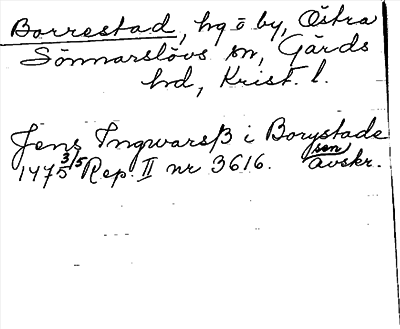 Borrestad, hg o by, Östra
Sönnarslövs sn, Gärds
hd, Krist. l.
Jens Ingwarsß i Borystade
1475 3/5 Rep. II nr 3616. sen avskr.